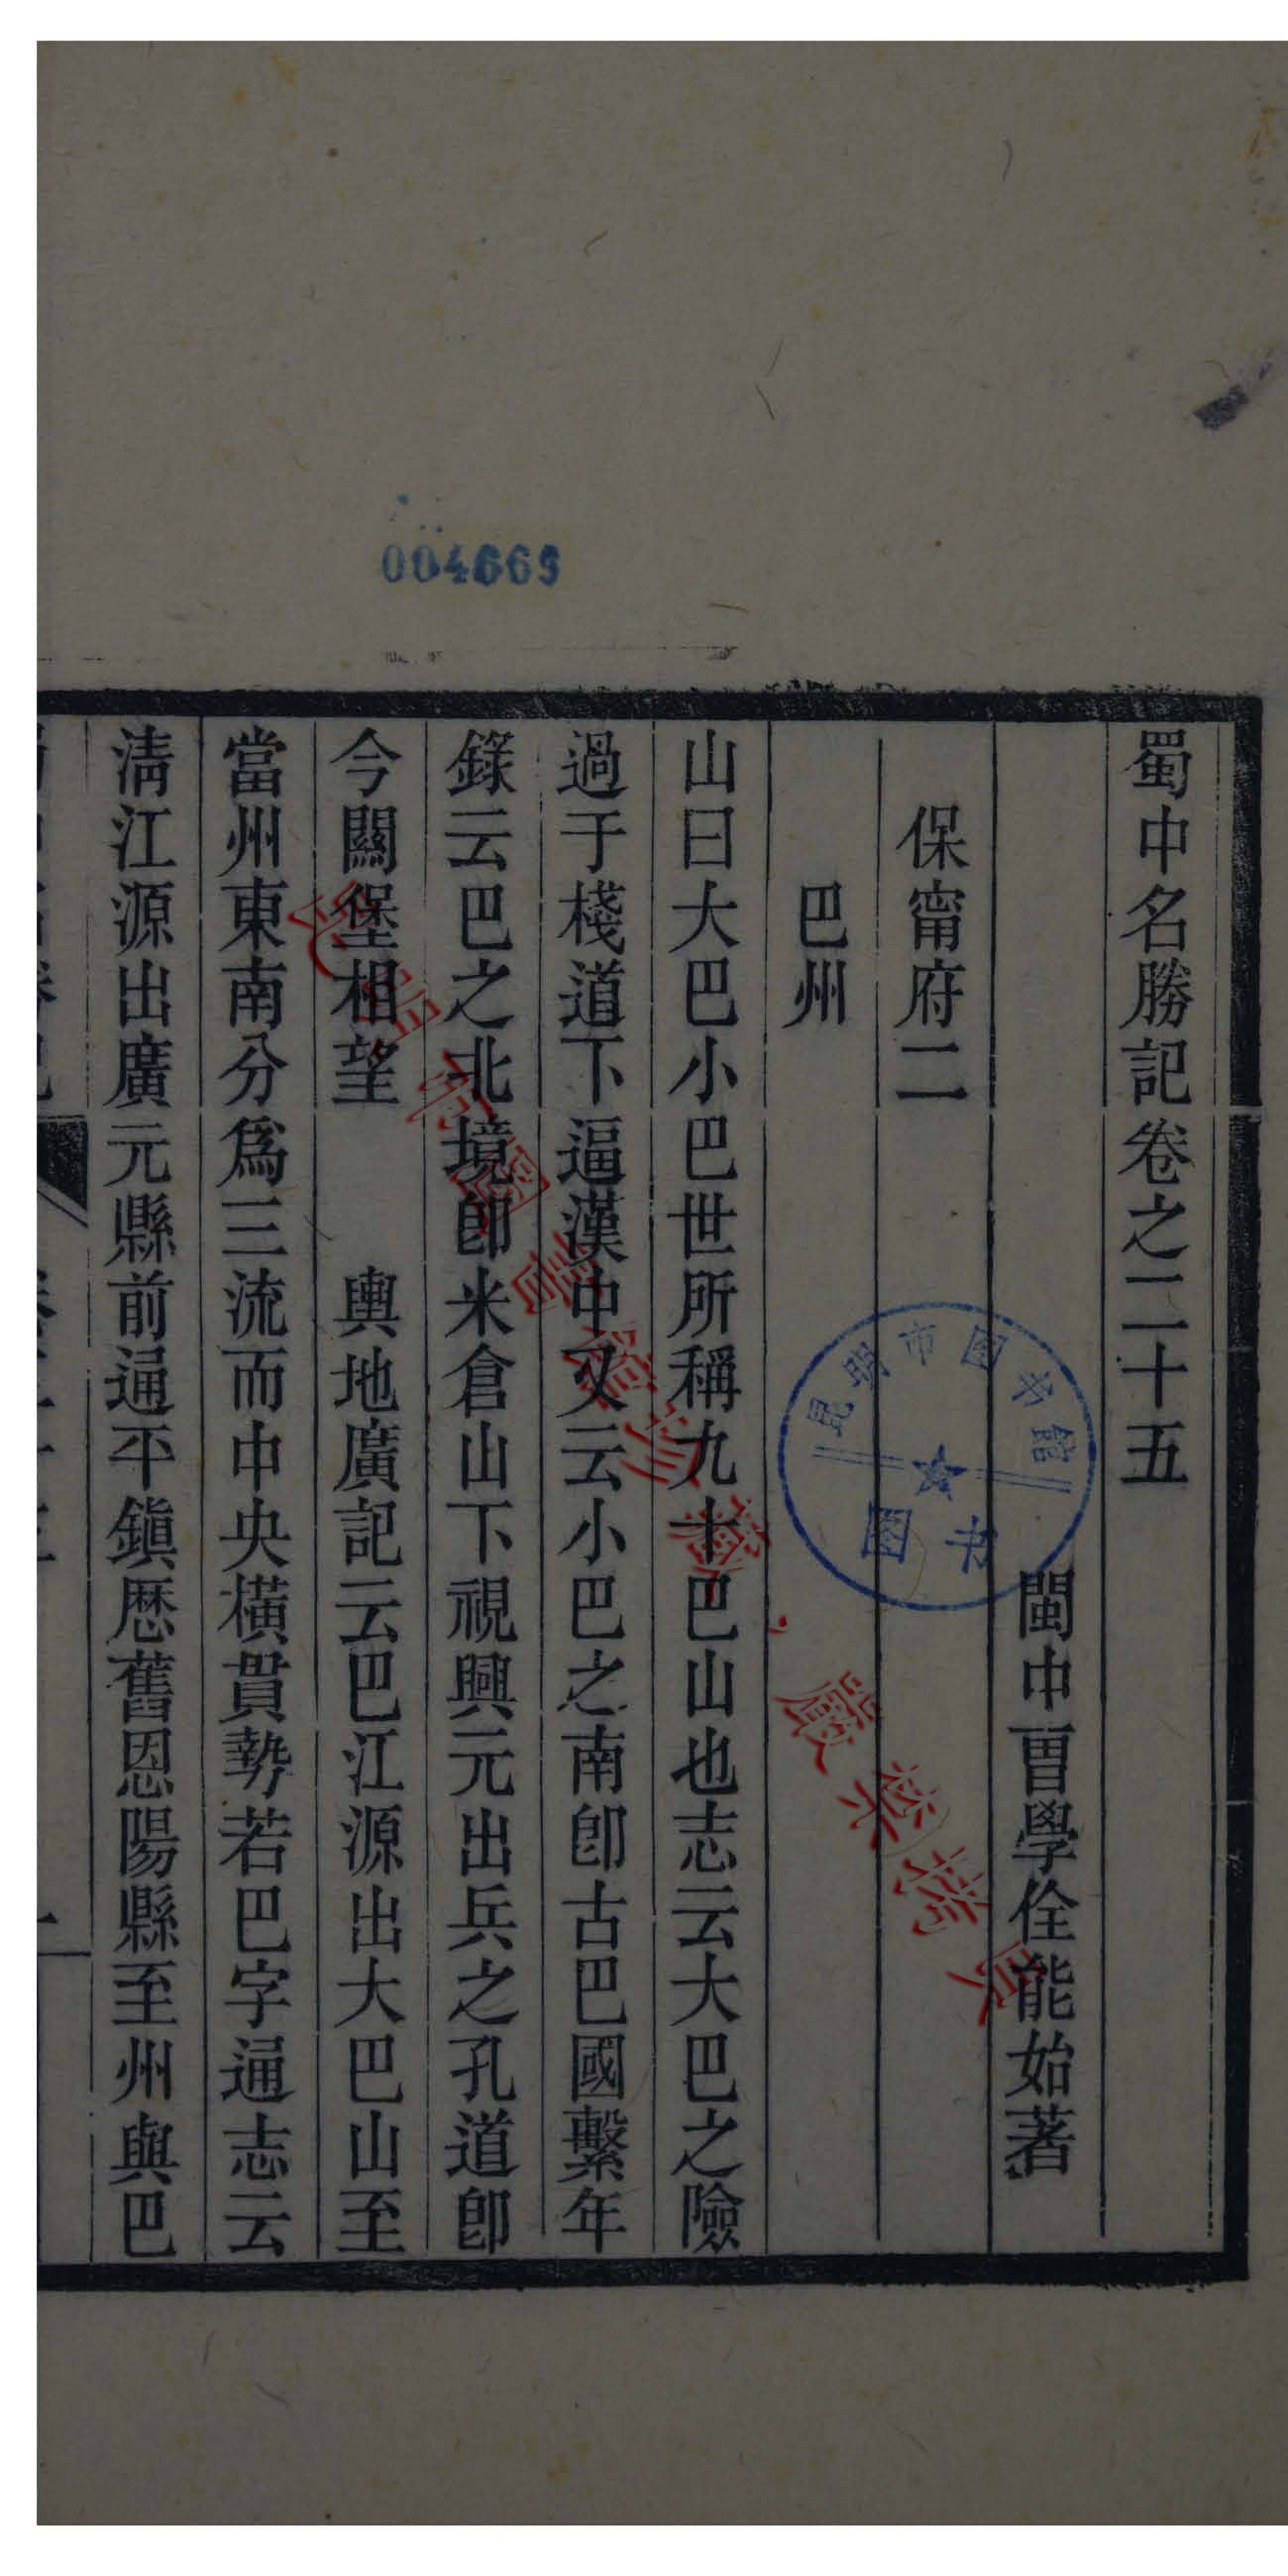 蜀中名勝記卷之二十五
閩中曺學佺能始著
保甯府二
巴州
山曰大巴小巴世所稱九十巴山也志云大巴之險
過于棧道下逼漢中又云小巴之南卽古巴國繫年
錄云巴之北境卽米倉山下視興元出兵之孔道卽
今關堡相望　輿地廣記云巴江源出大巴山至
當州東南分爲三流而中央橫貫勢若巴字通志云
淸江源出廣元縣前通平鎭歷舊恩陽縣至州與巴
004669
昆明市图书馆
图书
昆明市圖書館珍藏，嚴禁擄頁